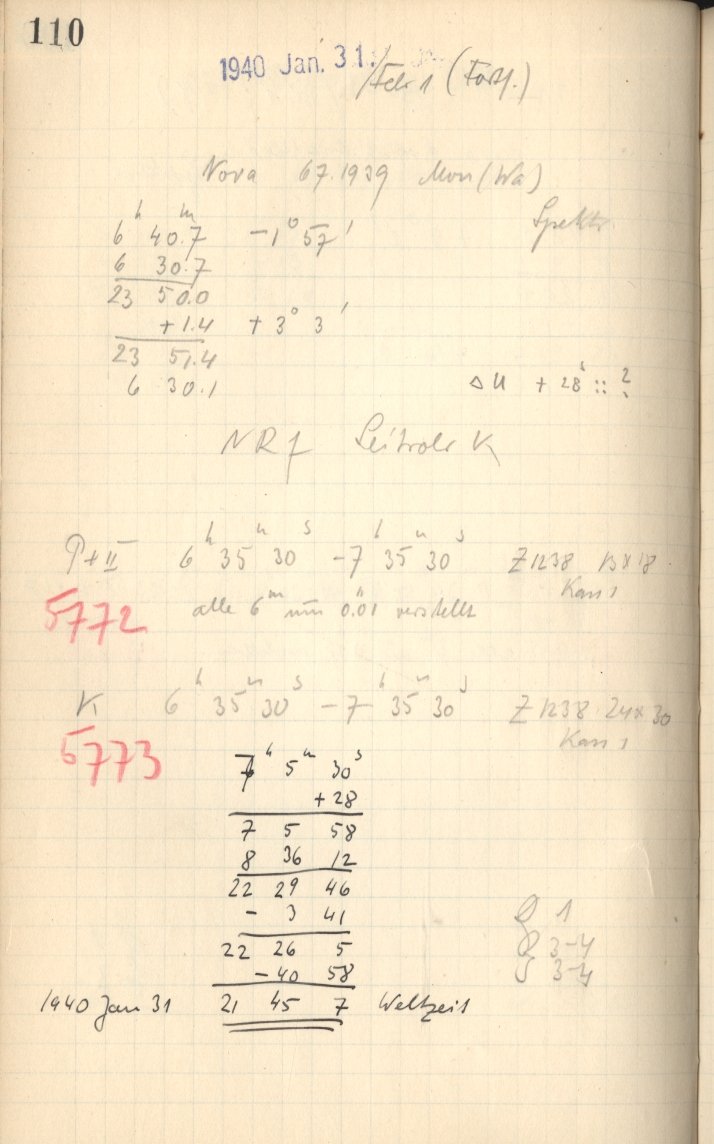 110
1940 Jan. 31. / Febr 1 (Forts.)
Nova 67.1939 Mon (Wa)
6ʰ 40ᵐ.7 −1° 57′ Spektr
6 30.7
23 50.0
+1.4 +3° 3′
23 51.4
6 30.1 ΔU +28ˢ :: ?
NR 7 Leitrohr K
P+II 6ʰ 35ᵐ 30ˢ −7ʰ 35ᵐ 30ˢ Z 1238 13×18
5772 alle 6ᵐ um 0.″01 verstellt
K 6ʰ 35ᵐ 30ˢ −7ʰ 35ᵐ 30ˢ Z 1238 24×30
5773
7ʰ 5ᵐ 30ˢ
+28
7 5 58
8 36 12
22 29 46
− 3 41 1
22 26 5 3-4
−40 58 3-4
1940 Jan 31 21 45 7 Weltzeit